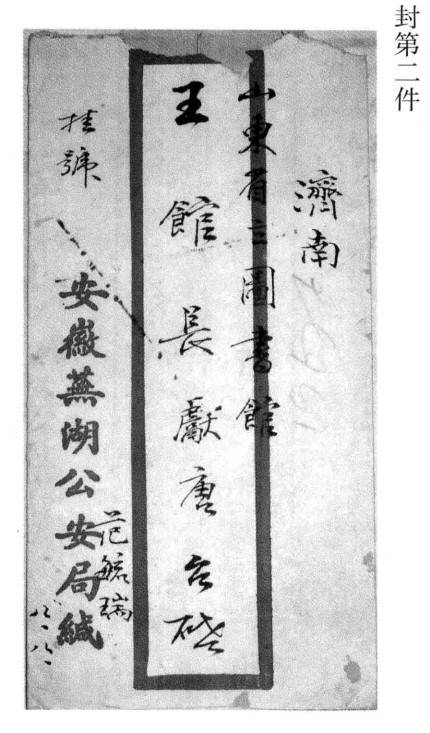 封第二件
濟南
山東省立圖書館
王館長獻唐台啓
掛號
安徽蕪湖公安局緘
范毓瑞